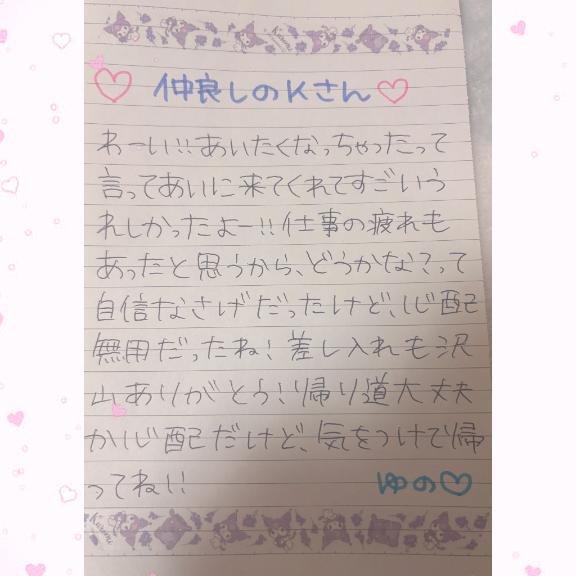 ♡ 仲良しのKさん ♡
わーい!!あいたくなっちゃったって
言ってあいに来てくれてすごいう
れしかったよー!!仕事の疲れも
あったと思うから、どうかな?って
自信なさげだったけど、心配
無用だったね!差し入れも沢
山ありがとう!帰り道大丈夫
か心配だけど、気をつけて帰
ってね!!
ゆの♡